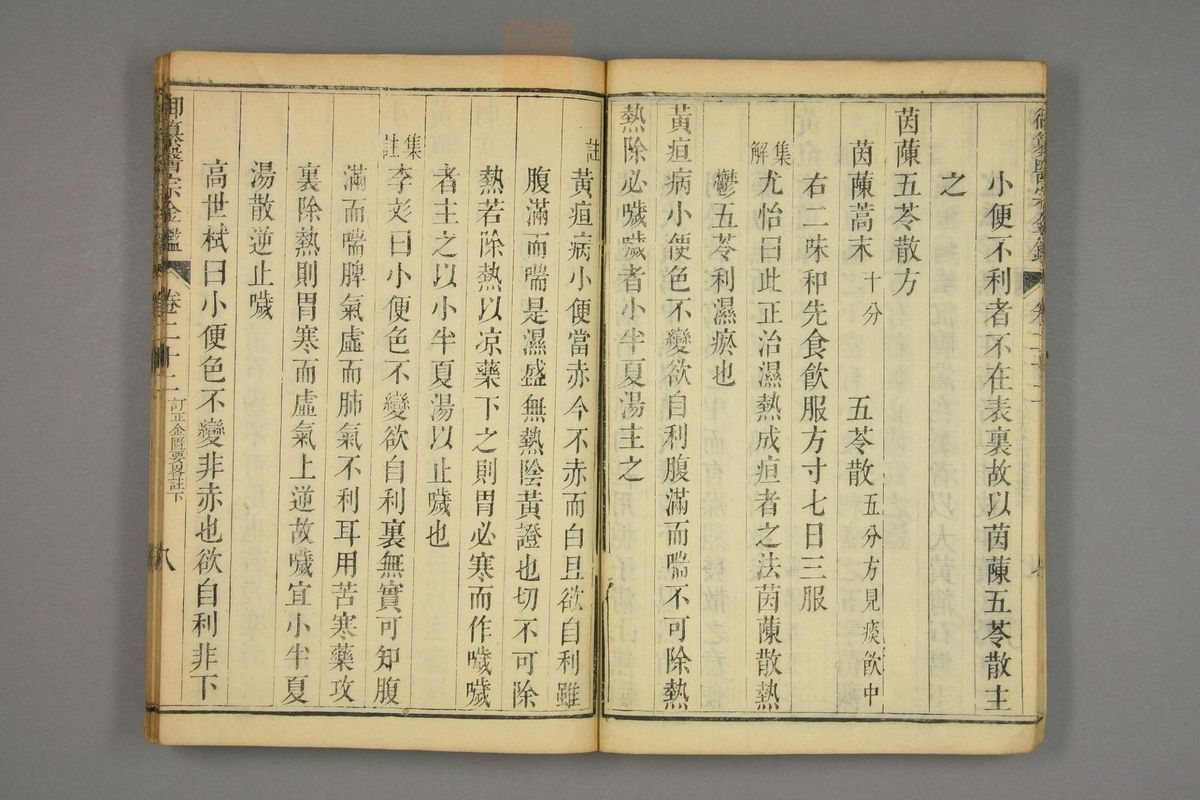 小便不利者不在表裏故以茵蔯五苓散主
之
茵蔯五苓散方
茵蔯蒿末十分　五苓散五分方見痰飲中
右二味和先食飲服方寸七日三服
集解尤怡曰此正治濕熱成疸者之法茵蔯散熱
鬱五苓利濕瘀也
黃疸病小便色不變欲自利腹滿而喘不可除熱
熱除必噦噦者小半夏湯主之
註黃疸病小便當赤今不赤而白且欲自利雖
腹滿而喘是濕盛無熱陰黃證也切不可除
熱若除熱以凉藥下之則胃必寒而作噦噦
者主之以小半夏湯以止噦也
集註李彣曰小便色不變欲自利裏無實可知腹
滿而喘脾氣虛而肺氣不利耳用苦寒藥攻
裏除熱則胃寒而虛氣上逆故噦宜小半夏
湯散逆止噦
高世栻曰小便色不變非赤也欲自利非下
御纂醫宗金鑑　卷二十二　訂正金匱要畧註下　八